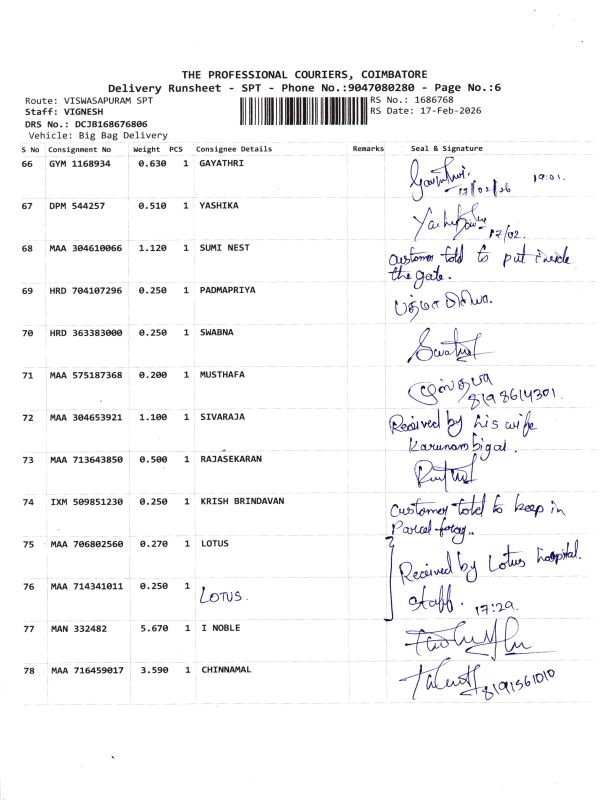 THE PROFESSIONAL COURIERS, COIMBATORE
Delivery Runsheet - SPT - Phone No.:9047080280 - Page No.:6
Route: VISWASAPURAM SPT
RS No.: 1686768
Staff: VIGNESH
RS Date: 17-Feb-2026
DRS No.: DCJB168676806
Vehicle: Big Bag Delivery
S No Consignment No Weight PCS Consignee Details Remarks Seal & Signature
66 GYM 1168934 0.630 1 GAYATHRI
17/02/26 19:01.
67 DPM 544257 0.510 1 YASHIKA
17/02.
68 MAA 304610066 1.120 1 SUMI NEST customer told to put inside
the gate.
69 HRD 704107296 0.250 1 PADMAPRIYA
70 HRD 363383000 0.250 1 SWABNA
71 MAA 575187368 0.200 1 MUSTHAFA
8198614301.
72 MAA 304653921 1.100 1 SIVARAJA Received by his wife
Karunambigai.
73 MAA 713643850 0.500 1 RAJASEKARAN
74 IXM 509851230 0.250 1 KRISH BRINDAVAN customer told to keep in
Parcel
75 MAA 706802560 0.270 1 LOTUS Received by Lotus hospital
76 MAA 714341011 0.250 1 LOTUS. staff. 17:29
77 MAN 332482 5.670 1 I NOBLE
78 MAA 716459017 3.590 1 CHINNAMAL
8191561010